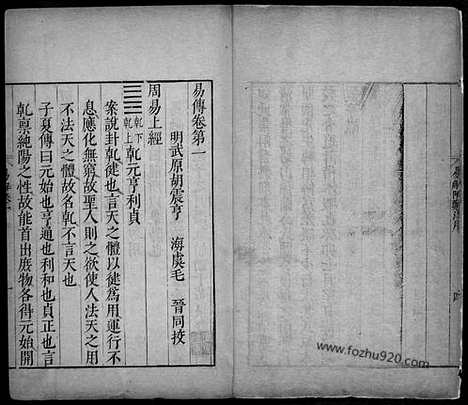 易傳卷第一
明武原胡震亨 海虞毛 晉同挍
周易上經
乾下
乾上
乾元亨利貞
案說卦乾健也言天之體以健爲用運行不
息應化無窮故聖人則之欲使人法天之用
不法天之體故名乾不言天也
子夏傳曰元始也亨通也利和也貞正也言
乾稟純陽之性故能首出庶物各得元始開
www.fozhu920.com